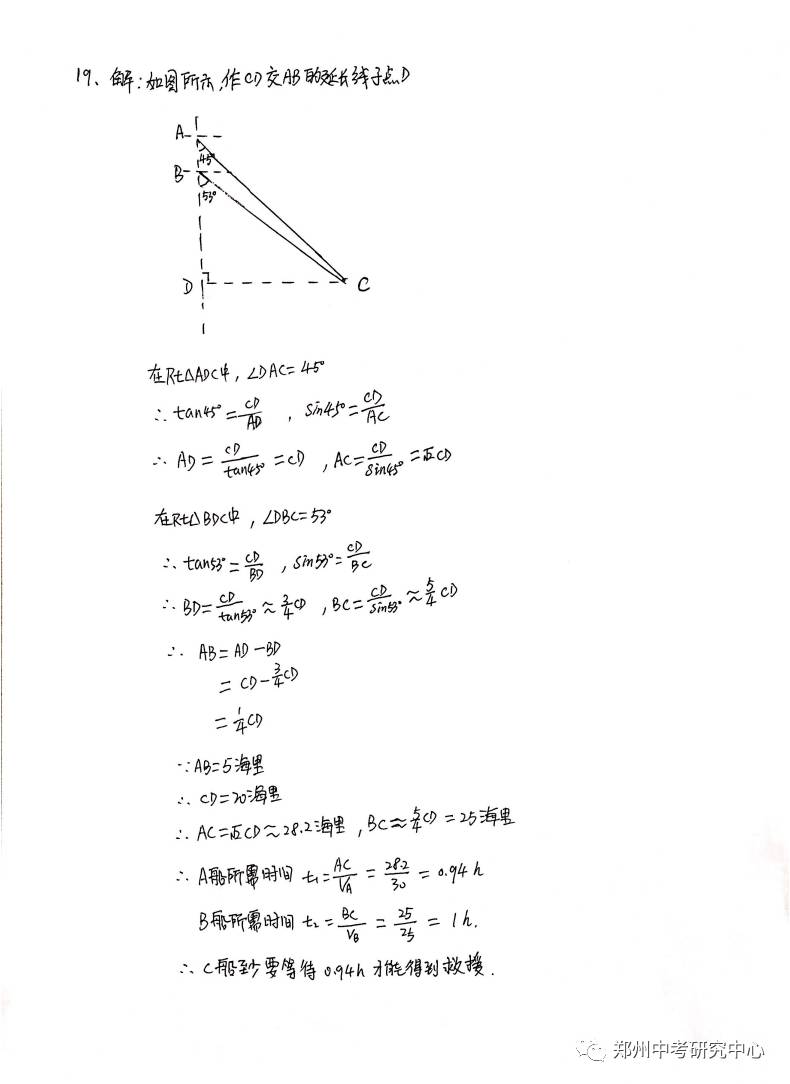 19、解:如图所示,作CD交AB的延长线于点D
A
45°
B
53°
D
C
在Rt△ADC中, ∠DAC=45°
∴ tan45°=CD/AD , sin45°=CD/AC
∴ AD=CD/tan45°=CD , AC=CD/sin45°=√2CD
在Rt△BDC中, ∠DBC=53°
∴ tan53°=CD/BD , sin53°=CD/BC
∴ BD=CD/tan53°≈3/4CD , BC=CD/sin53°≈5/4CD
∴ AB=AD-BD
=CD-3/4CD
=1/4CD
∵AB=5海里
∴ CD=20海里
∴ AC=√2CD≈28.2海里, BC≈5/4CD=25海里
∴ A船所需时间 t₁=AC/V_A=28.2/30=0.94h
B船所需时间 t₂=BC/V_B=25/25=1h.
∴ C船至少要等待0.94h才能得到救援.
郑州中考研究中心